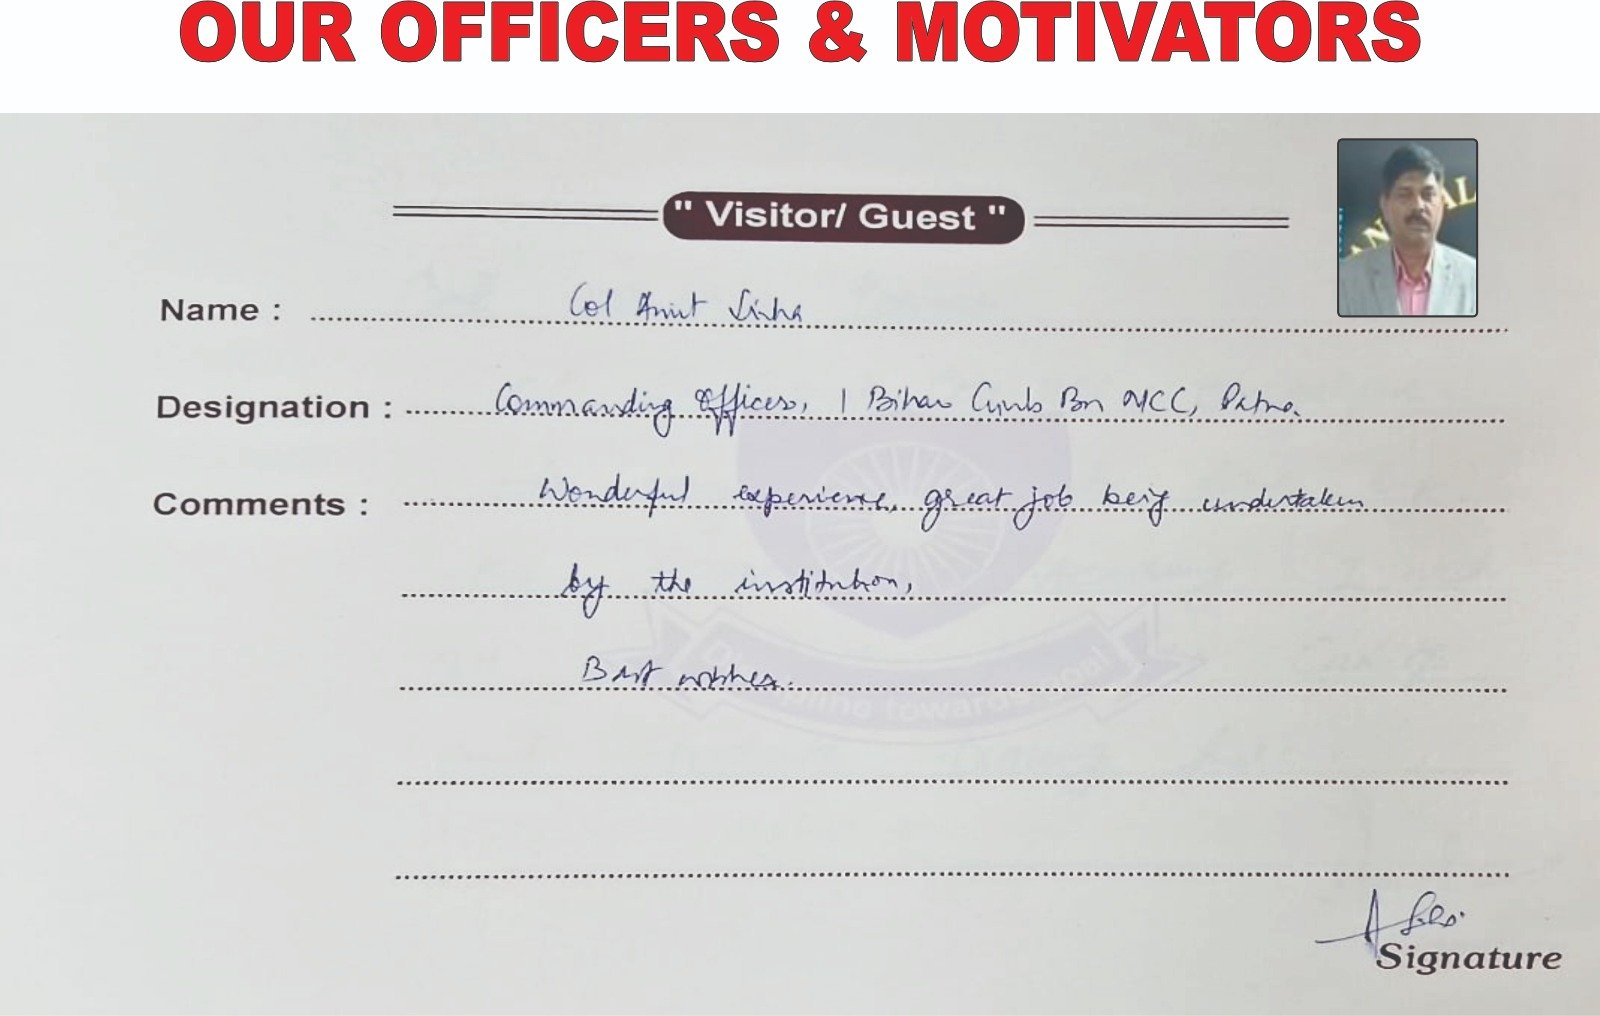 OUR OFFICERS & MOTIVATORS
" Visitor/ Guest "
Name : Col Amit Sinha
Designation : Commanding Officer, 1 Bihar Comb Bn NCC, Patna.
Comments : Wonderful experience, great job being undertaken
by the institution,
Best wishes.
Signature